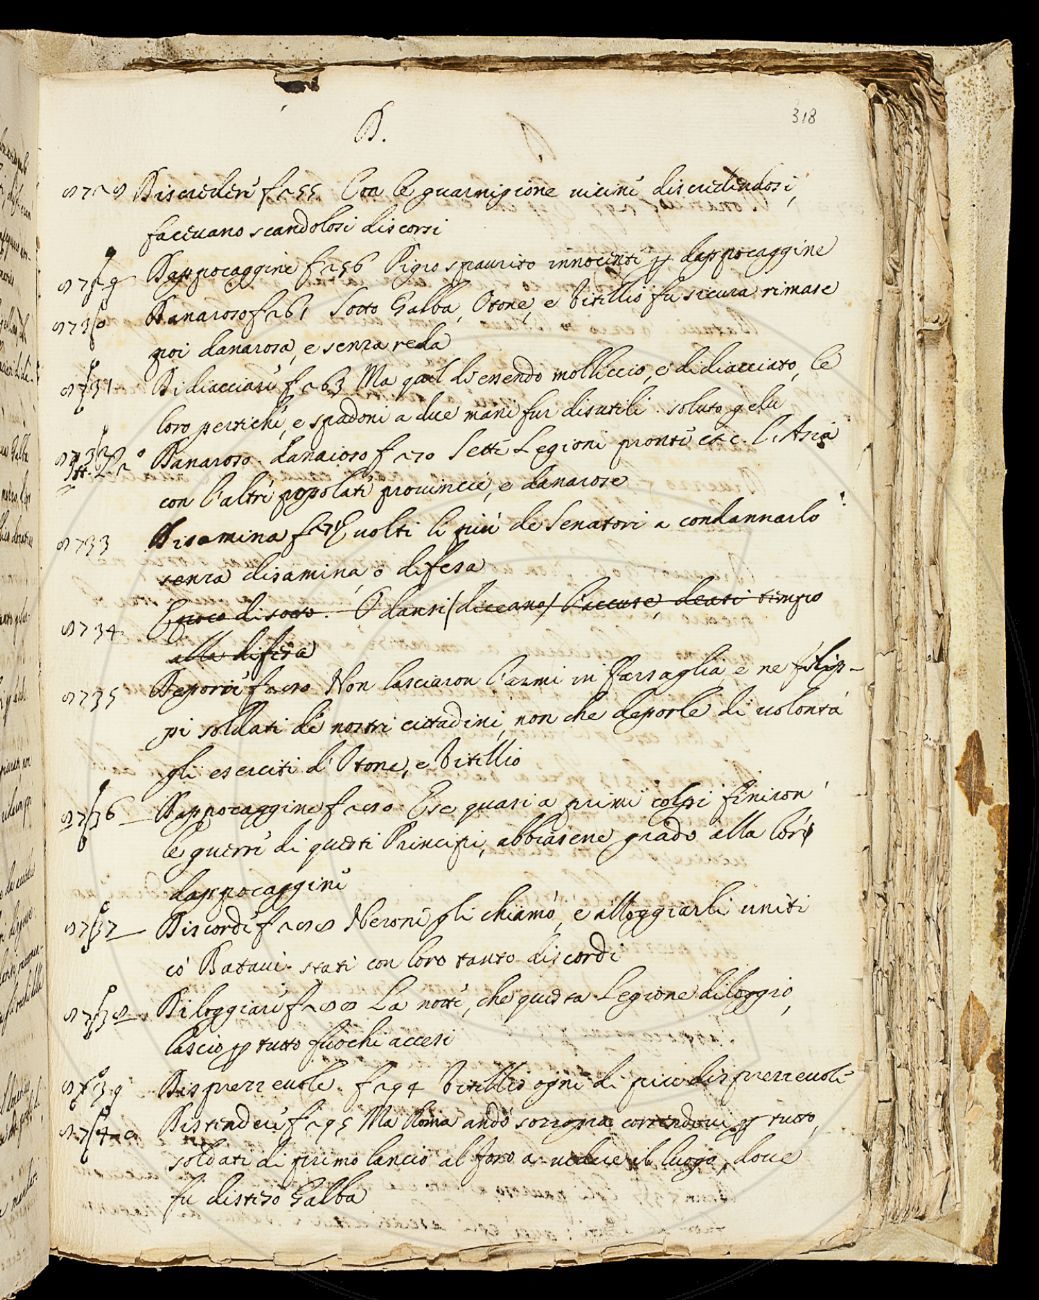 318
D.
8728 Discredere f. 255 Con le guarnigione vicine discredendosi,
facevano scandolosi discorsi
8729 Dappocaggine f. 256 Pigro spaurito innocenti ꝑ dappocaggine
8730 Danaroso f. 261 Sotto Galba, Otone, e Vitellio fu sicura rimase
poi danarosa, e senza reda
8731 Didiacciare f. 263 Ma quel dì essendo molliccio, e didiacciato, le
loro pertiche, e spadoni a due mani fur disutili soluto gelu
8732 Danaroso. danaioso f. 270 Sette Legioni pronte etc. l'Asia
con l'altre popolate provincie, e danarose
8733 Disamina f. 271 E volti li più de Senatori a condannarlo
senza disamina, o difesa
8734 disotto. O dansi (diceano) l'accuse, deasi tempo
alla difesa
8735 Deporre f. 280 Non lasciaron l'armi in Farsaglia e ne Filip-
pi soldati de nostri cittadini, non che deporle di volontà
gli eserciti d'Otone, e Vitellio
8736 Dappocaggine f. 280 E se quasi a primi colpi finiron
le guerre di questi Principi, abbiasene grado alla lor
dappocaggine
8737 Discorde f. 288 Nerone gli chiamò, e alloggiarli uniti
co' Batavi stati con loro tanto discordi
8738 Diloggiare f. 288 La notte, che questa Legione diloggio,
lascio ꝑ tutto fuochi accesi
8739 Disprezzevole. f. 294 Vitellio ogni dì più disprezzevole
8740 Distendere f. 295 Ma Roma andò sozzopra correndovi ꝑ tutto,
soldati di primo lancio al foro a vedere il luogo, dove
fu disteso Galba